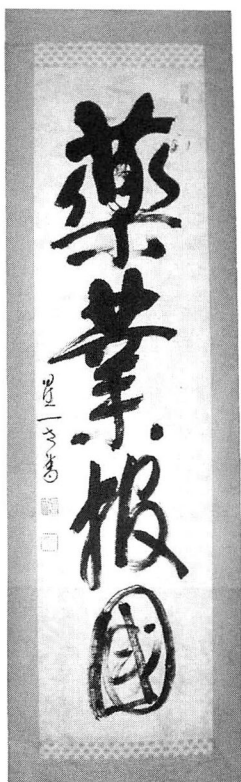 藥業報国
星一書